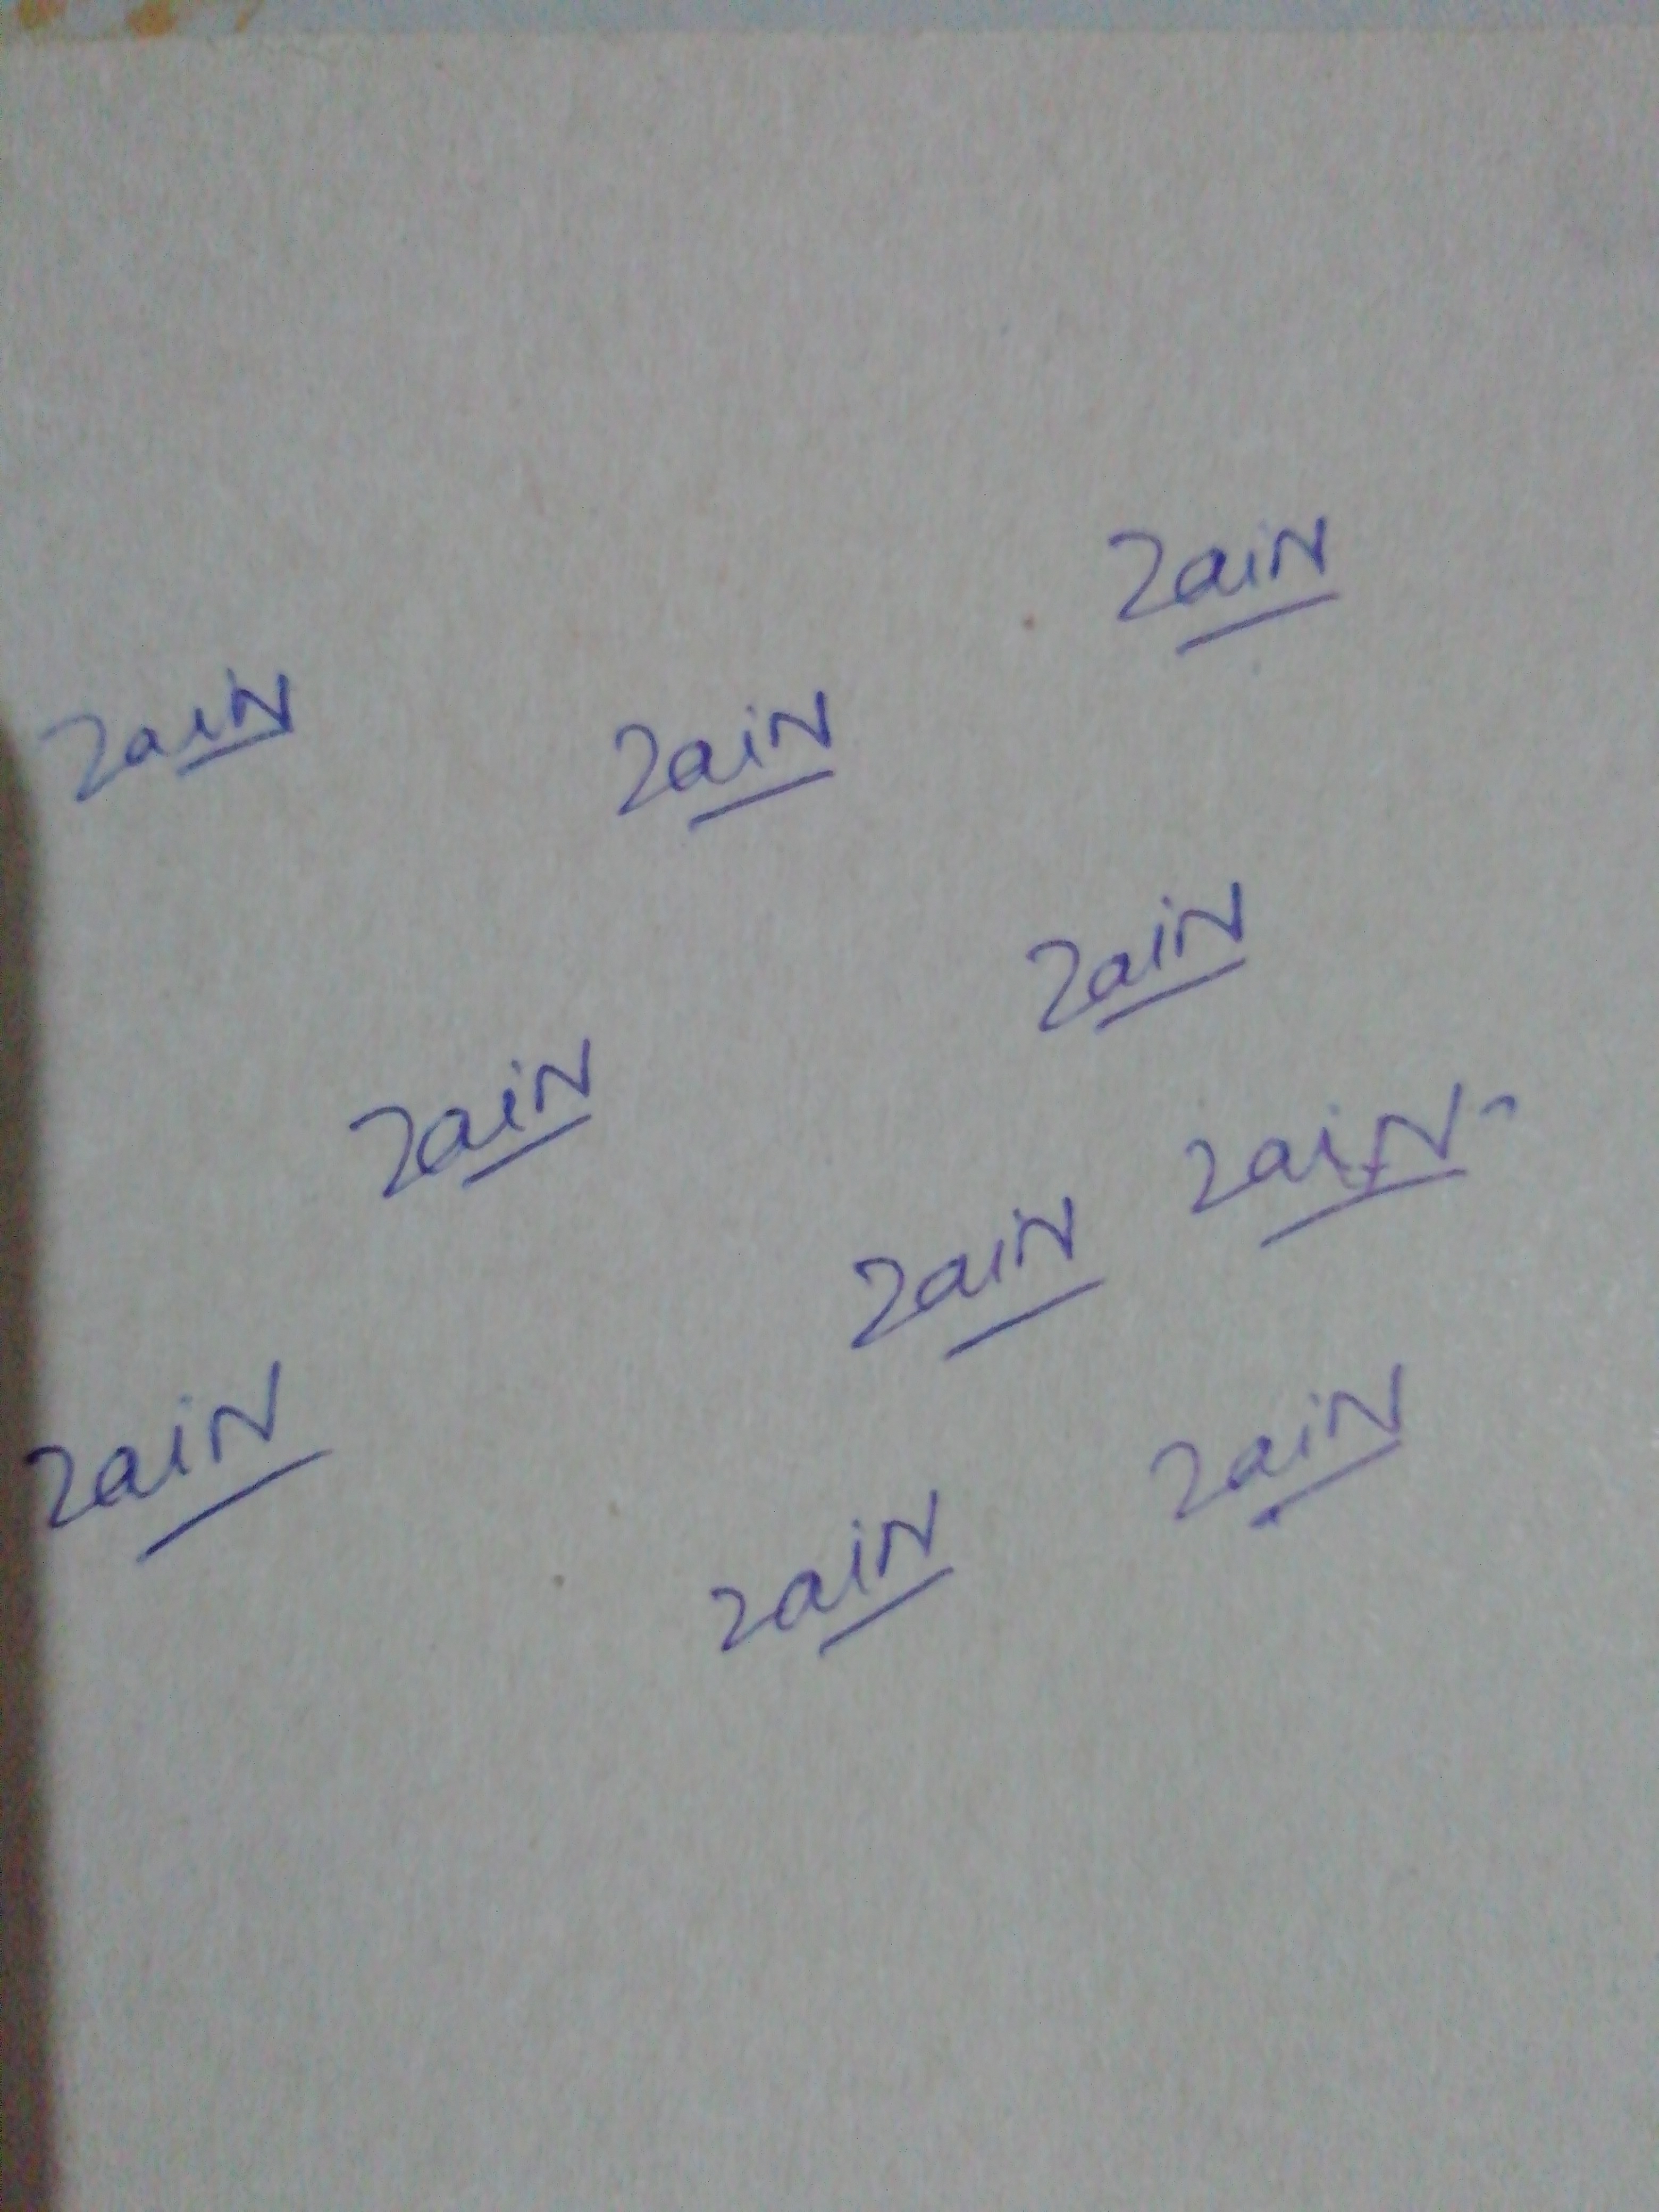 Zain
Zain
Zain
Zain
Zain
Zain
Zain
Zain
Zain
Zain